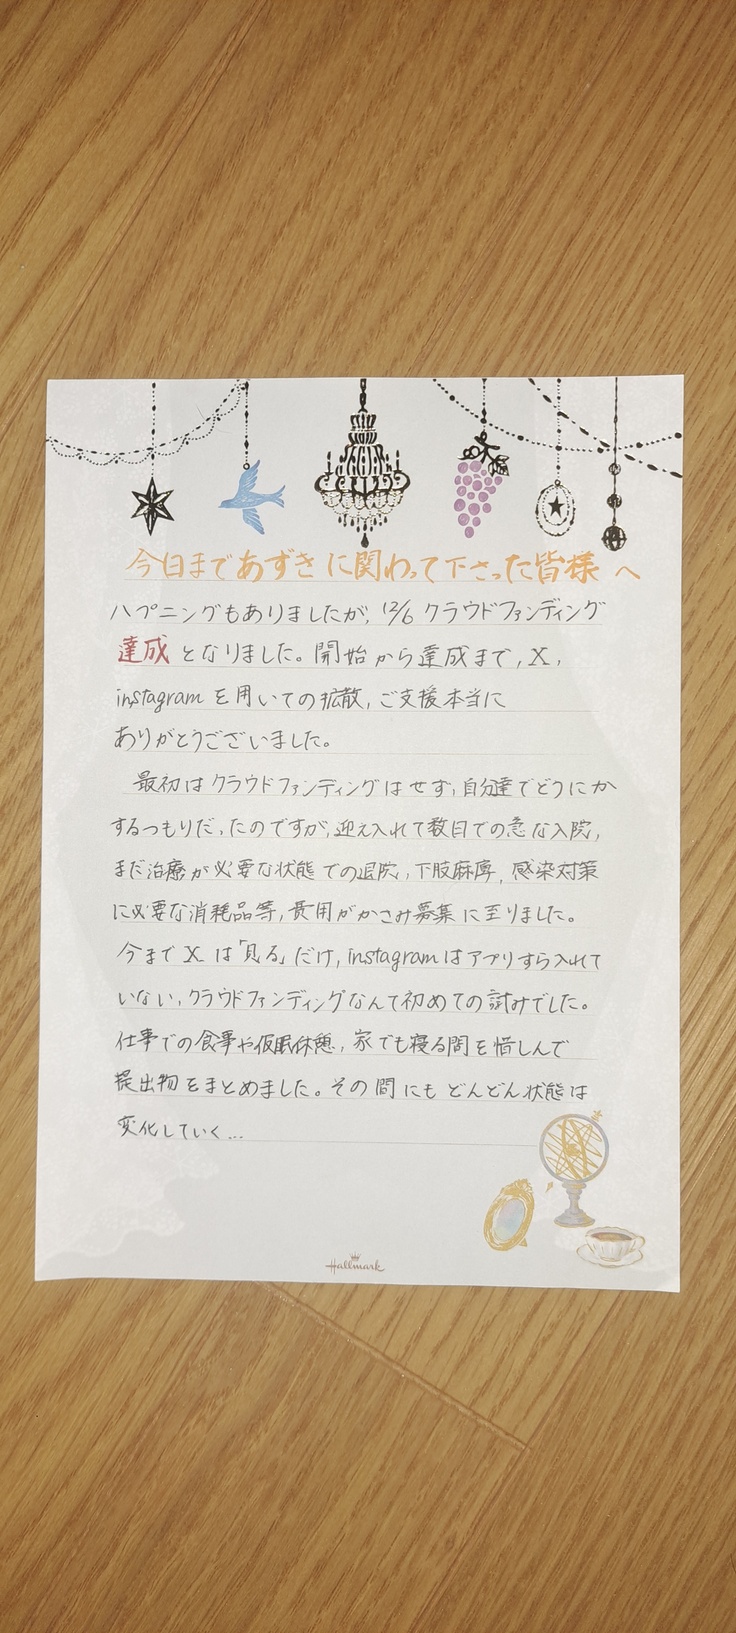 今日まであずきに関わって下さった皆様へ
ハプニングもありましたが、12/6 クラウドファンディング
達成となりました。開始から達成まで、X、
instagramを用いての拡散、ご支援本当に
ありがとうございました。
最初はクラウドファンディングはせず、自分達でどうにか
するつもりだったのですが、迎え入れて数日での急な入院、
まだ治療が必要な状態での退院、下肢麻痺、感染対策
に必要な消耗品等、費用がかさみ募集に至りました。
今までXは「見る」だけ、instagramはアプリすら入れて
いない、クラウドファンディングなんて初めての試みでした。
仕事での食事や仮眠休憩、家でも寝る間を惜しんで
提出物をまとめました。その間にもどんどん状態は
変化していく…
Hallmark